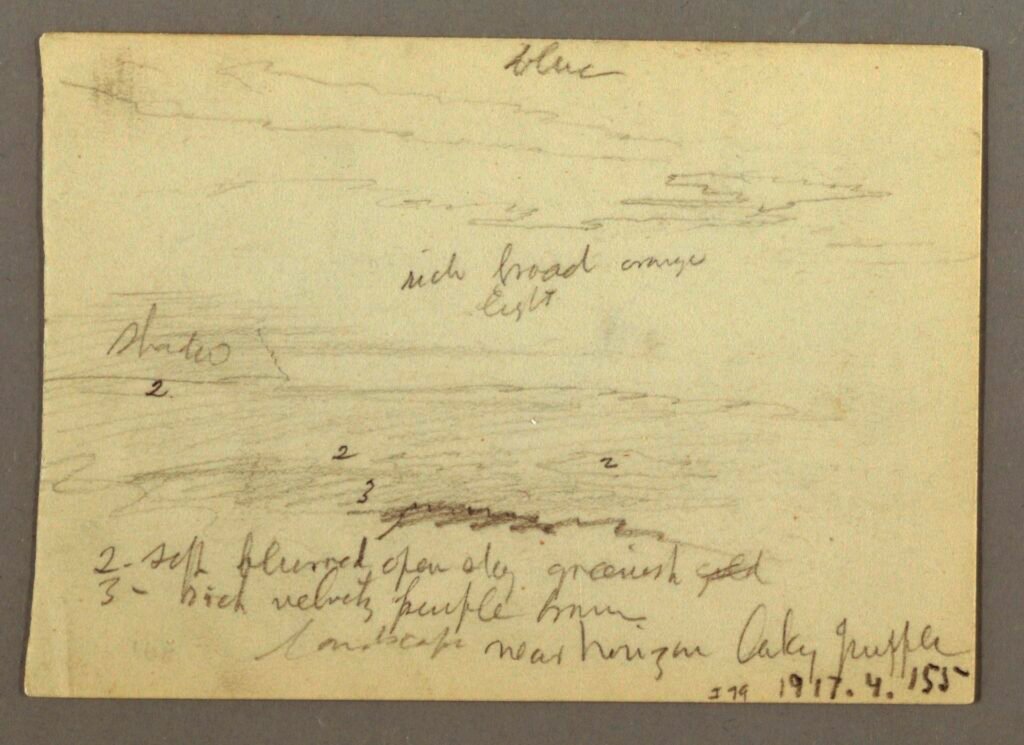 blue
rich broad orange
light
shadow
2.
2
2
3
2 - soft blurred, open sky greenish gold
3 - rich velvety purple brown
landscape near horizon Oaky purple
I 79 1917.4.155